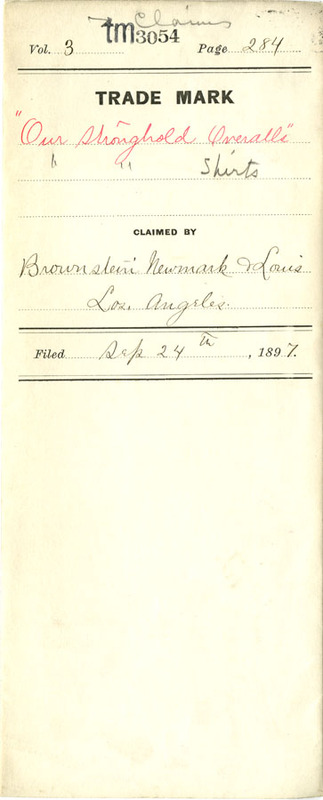 Claims
tm3054
Vol. 3 Page 284
TRADE MARK
"Our Stronghold Overalls"
" " Shirts
CLAIMED BY
Brownstein Newmark & Louis
Los Angeles.
Filed Sep 24th, 1897.